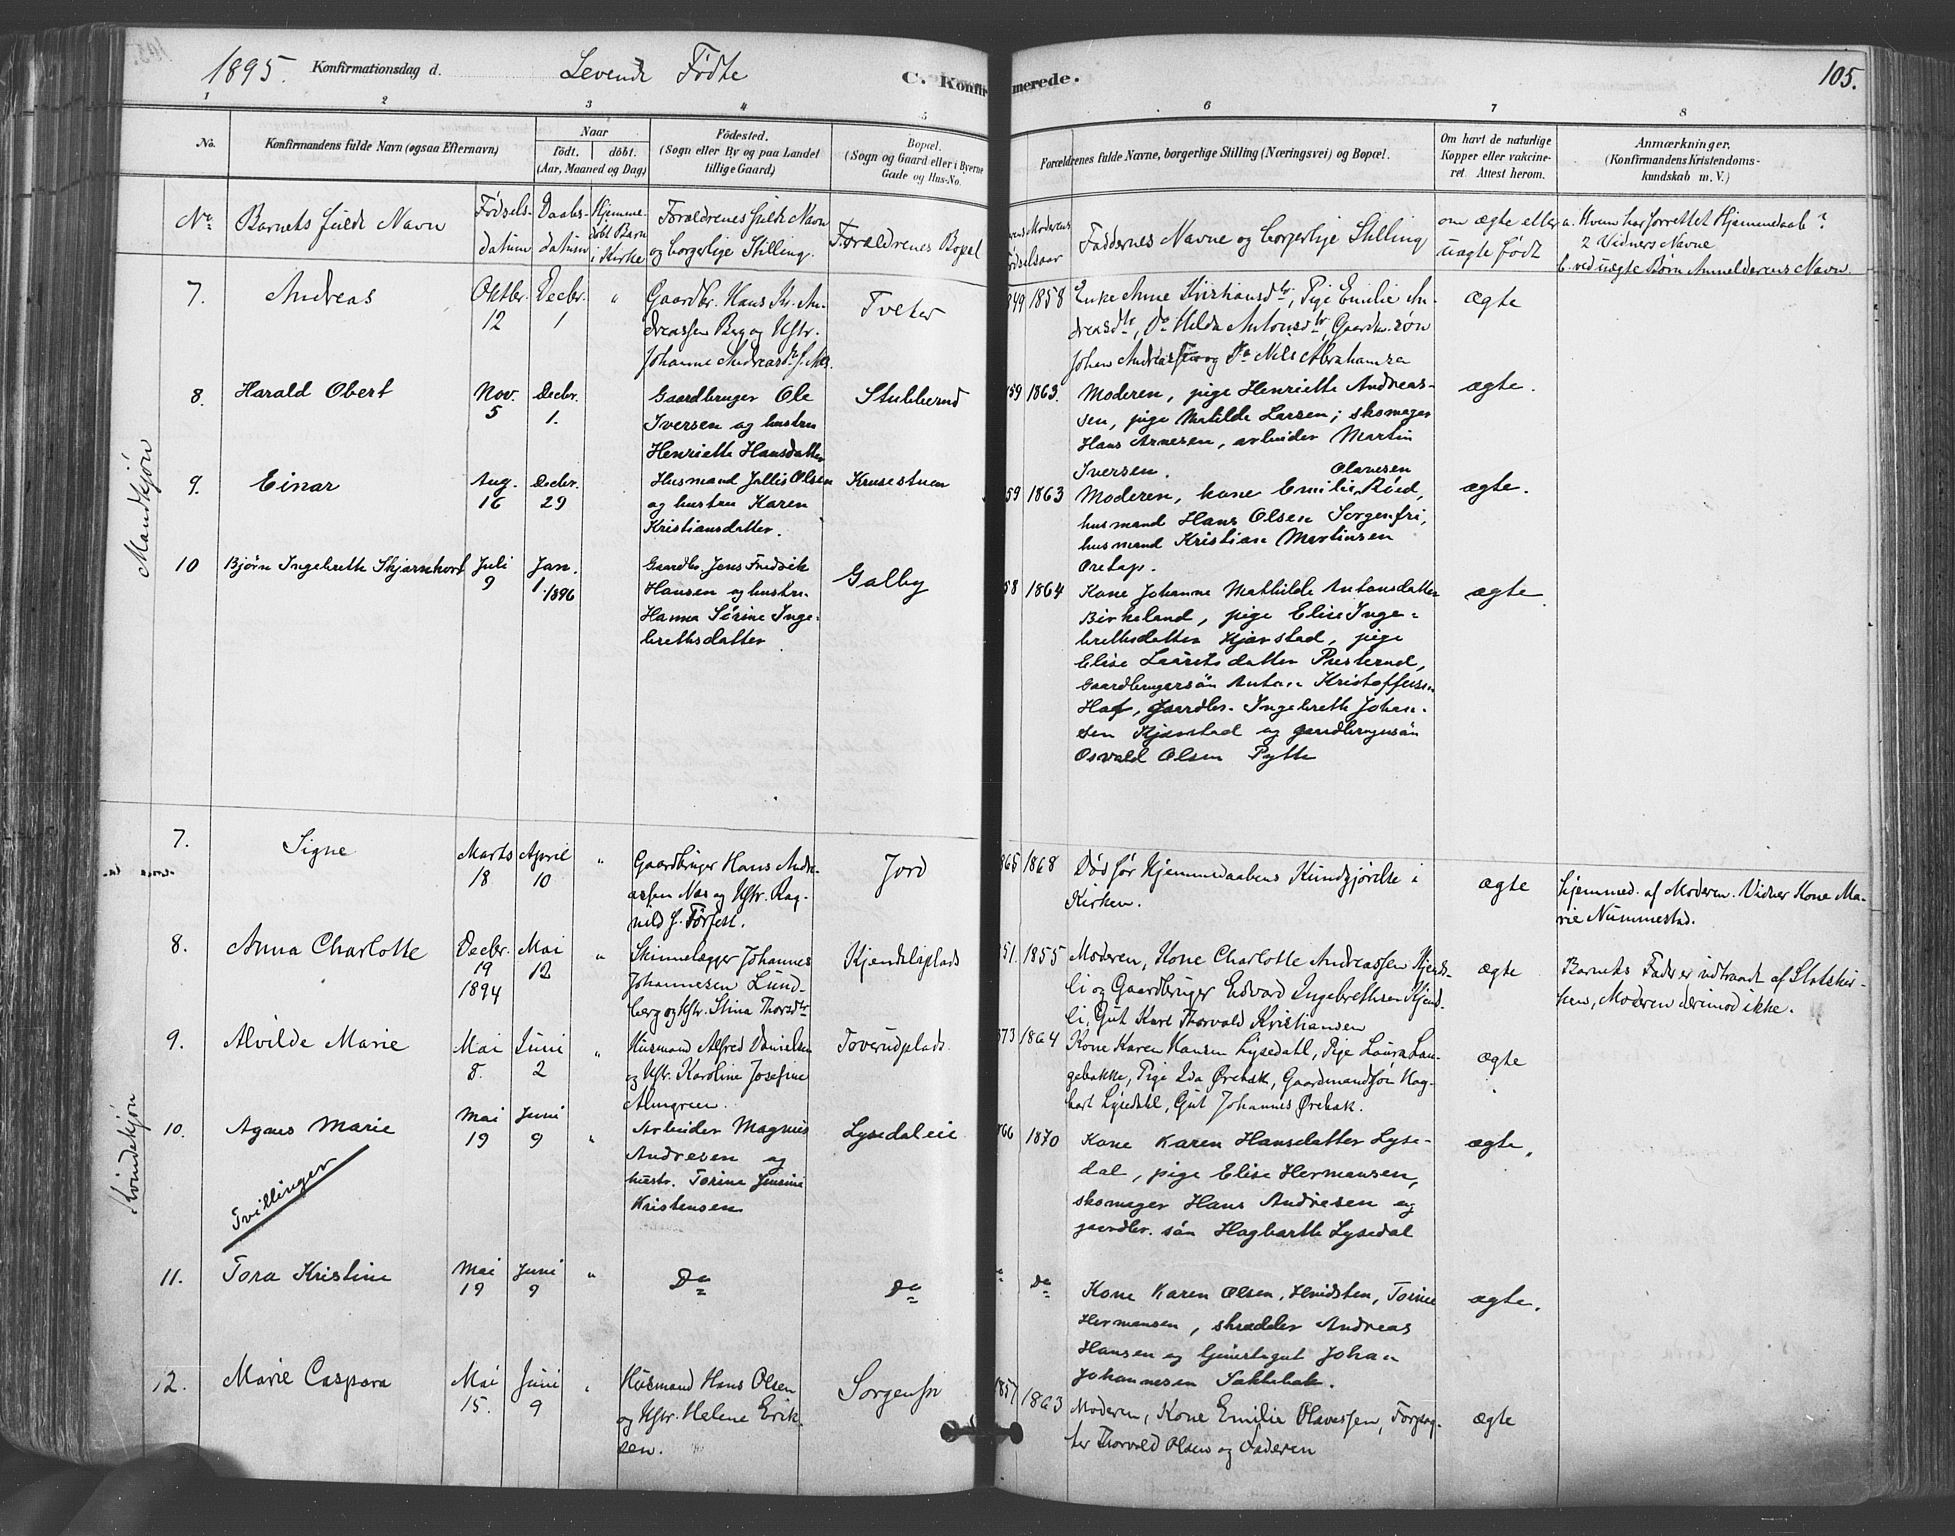 1895. Konfirmationsdag d. Levende Fødte C. Konfirmerede. 105.
1 2 3 4 5 6 7 8
No. Konfirmandens fulde Navn (ogsaa Efternavn)
Naar
født. døbt.
(Aar, Maaned og Dag)
Födested.
(Sogn eller By og paa Landet
tillige Gaard)
Bopæl.
(Sogn og Gaard eller i Byerne
Gade og Hus-No.
Forældrenes fulde Navne, borgerlige Stilling (Næringsvei) og Bopæl.
Om havt de naturlige
Kopper eller vakcine-
ret. Attest herom.
Anmærkninger.
(Konfirmandens Kristendoms-
kundskab m. V.)
No Barnets fulde Navn
Fødsels-
datum
Daabs-
datum
Hjemme-
døbt Barn
i Kirke
Forældrenes fulde Navn
og borgerlige Stilling.
Forældrenes Bopæl
Moderens
Faddernes Navne og borgerlige Stilling
om ægte eller
uægte født
a. Hvem har forrettet Hjemmedaab?
2 Vidners Navne
b. ved uægte Børn Anmelderens Navn
Mandkjøn
7. Andreas
Oktbr.
12
Decbr.
1
"
Gaardbr. Hans Kr. An-
dreassen Berg og Hstr.
Johanne Andreasdtr.
Tveter
1858
Enke Anne Kristiansdtr, Pige Emilie An-
dreasdtr, Do Hilda Antonsdtr, Gaardm.søn
Johan Andreassen og Do Nils Abrahamsen
ægte
8. Harald Obert
Nov.
5
Decbr.
1.
Gaardbruger Ole
Iversen og hustru
Henriette Hansdatter
Stubberud
59 1863.
Moderen, pige Henriette Andreas-
sen, pige Matilde Larsen; skomager
Hans Arnesen, arbeider Martin
Iversen.
ægte.
9. Einar
Aug.
16
Decbr.
29
Husmand Jallis Olsen
og hustru Karen
Kristiansdatter.
Krusestuen
59 1863
Olavesen
Moderen, kone Emilie Röed,
husmand Hans Olsen Sorgenfri,
husmand Kristian Martinsen
Oretop.
ægte.
10 Bjørn Ingebreth Skjarnhort
Juli
9
Jan.
1. 1896
Gaardbr. Jens Fredrik
Hansen og hustru
Hanna Sörine Inge-
brethsdatter
Galby
58 1864
Kone Johanne Mathilde Antonsdatter
Birkeland, pige Elise Inge-
brethsdatter Kjærstad, pige
Elise Lauritsdatter Presterud,
Gaardbrugersön Anton Kristoffersen
Haf, gaardbr. Ingebreth Johan-
sen Kjærstad og gaardbrugersön
Osvald Olsen Pytte
ægte.
Kvindekjøn
7. Signe
Marts
18
April
10
"
Gaardbruger Hans Andre-
assen Næs og Hstr. Rag-
nild f. Førfest.
Jord
65 1868
Død før Hjemmedaabens Kundgjørelse i
Kirken.
ægte
Hjemmed. af Moderen. Vidner Kone Ma-
rie Nummestad.
8. Anna Charlotte
Decbr.
19
1894
Mai
12
"
Skinnelægger Johannes
Johannesen Lund-
berg og Hstr. Stina Thorsdtr
Kjendeliplads
51. 1855
Moderen, Kone Charlotte Andreassen Kjend-
li og Gaardbruger Edvard Ingebrethsen Kjend-
li, Gut Karl Thorvald Kristiansen
ægte
Barnets Fader er udtraadt af Statskir-
ken, Moderen derimod ikke.
9. Alvilde Marie
Mai
8.
Juni
2
"
Husmand Alfred Danielsen
og Hstr. Karoline Josefine
Almgren.
Toverudplads.
73 1864
Kone Karen Hansen Lysedahl, Pige Laura Lan-
gebakke, Pige Ida Ørebæk, Gaardmandsøn Hag-
bart Lysedahl, Gut Johannes Ørebæk.
ægte
10. Agnes Marie
Mai
19
Juni
9
"
Arbeider Magnus
Andresen og
hustr. Torine Jensine
Kristensen
Lysedaleie
66 1870
Kone Karen Hansdatter Lyse-
dal, pige Elise Hermansen,
skomager Hans Andresen og
gaardbr. sön Hagbarth Lysedal
ægte.
Tvillinger
11. Tora Kristine
Mai
19
Juni
9
"
Do
Do
Do
Kone Karen Olsen, Hvidsten, Torine
Hermansen, skrædder Andreas
Hansen og tjenestegut Johan
Johannesen Sakkebæk.
ægte.
12. Marie Caspara
Mai
15.
Juni
9
"
Husmand Hans Olsen
og Hstr. Helene Erik-
sen.
Sorgenfri
1857 1863
Moderen, Kone Emilie Olavessen, Forpag-
ter Thorvald Olsen og Faderen
ægte